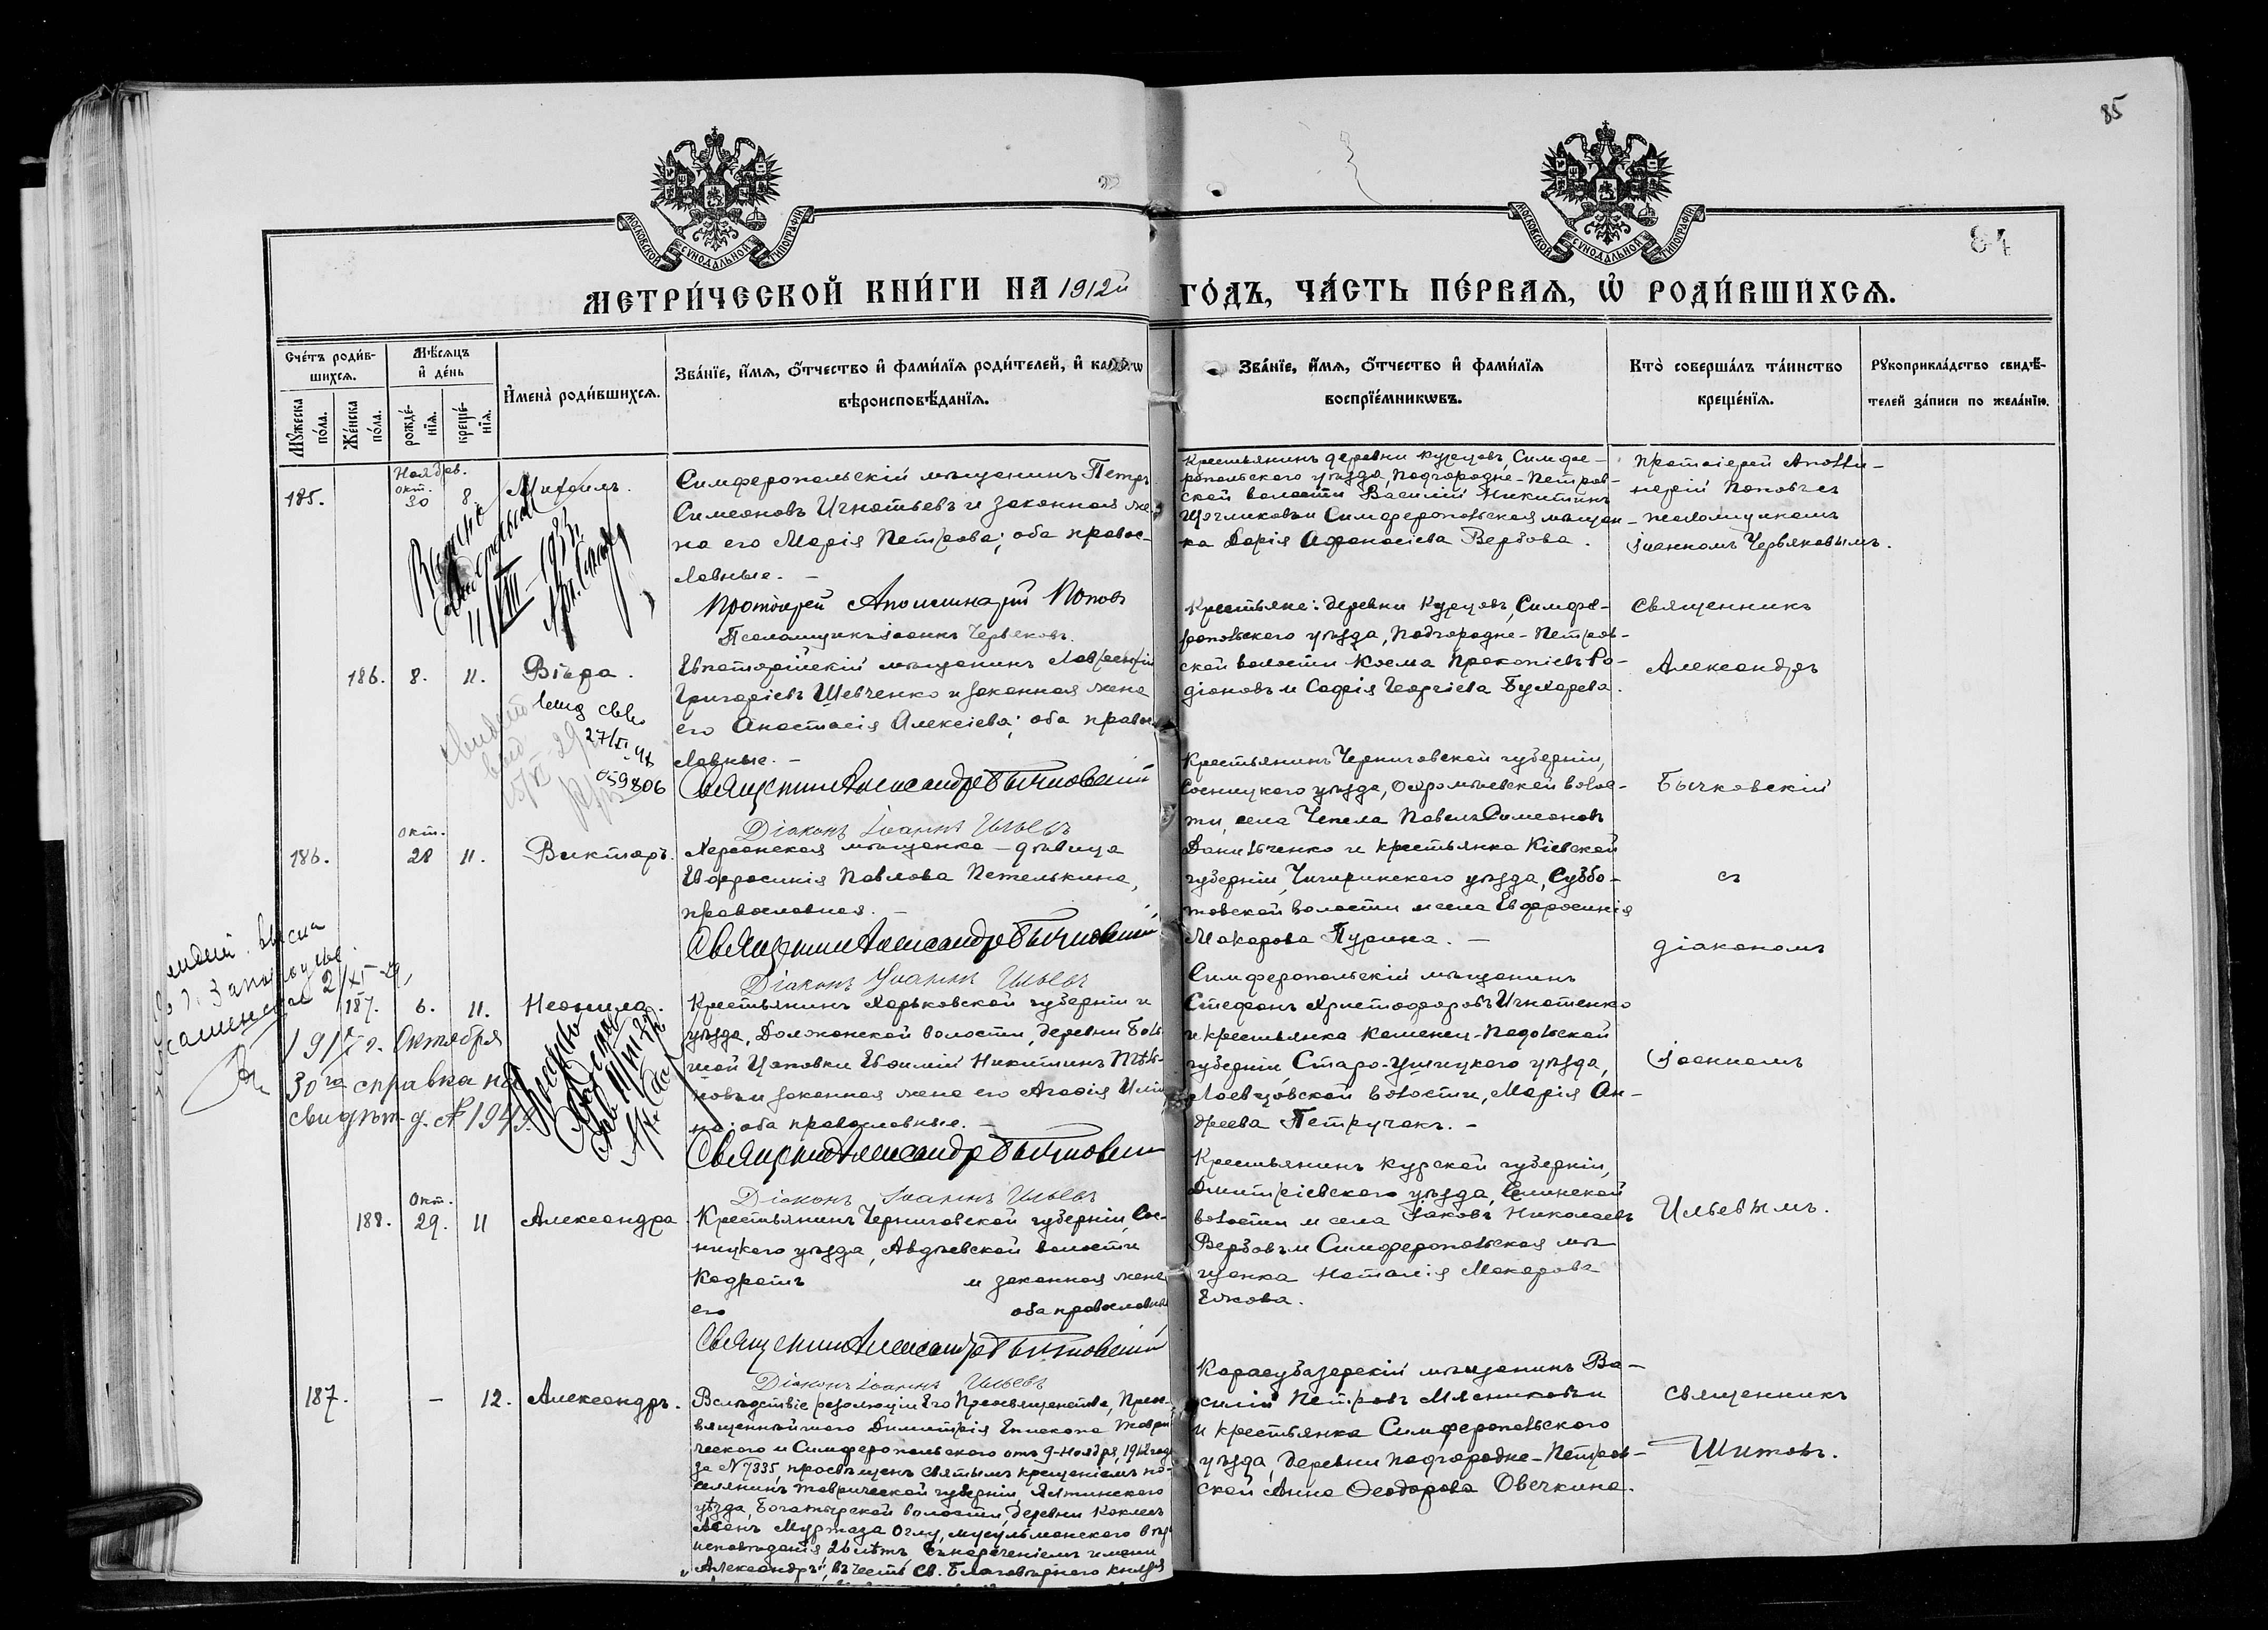 85
84
МОСКОВСКОЙ СѴНОДАЛЬНОЙ ТИПОГРАФІИ
МОСКОВСКОЙ СѴНОДАЛЬНОЙ ТИПОГРАФІИ
МЕТРИ́ЧЕСКОЙ КНИ́ГИ НА 1912й ГО́ДЪ, ЧА́СТЬ ПЕ́РВАѦ, Ѡ҆ РОДИ́ВШИХСѦ.
Сче́тъ роди́в-
шихсѧ.
Мꙋ́жеска по́ла.
Же́нска по́ла.
Мѣ́сѧцъ
и҆ де́нь
рожде́-
нїѧ.
креще́-
нїѧ.
И҆мена̀ роди́вшихсѧ.
Зва́нїе, и҆́мѧ, ѻ҆́тчество и҆ фами́лїѧ роди́телей, и҆
вѣроисповѣ́данїѧ.
Зва́нїе, и҆́мѧ, ѻ҆́тчество и҆ фами́лїѧ
воспрїе́мникѡвъ.
Кто̀ соверша́лъ та́инство
креще́нїѧ.
Рꙋкоприкла́дство свидѣ́-
телей за́писи по жела́нїю.
185.
Ноябр.
окт.
30
8.
Михаилъ.
Симферопольскій мѣщанинъ Петръ
Симеоновъ Игнатьевъ и законная же-
на его Марія Петрова; оба правос-
лавные. —
Протоіерей Аполлинарій Поповъ
Псаломщикъ Іоаннъ Червяковъ.
Крестьянинъ деревни Курцовъ, Симфе-
ропольскаго уѣзда, Подгородне-Петров-
ской волости Василій Никитинъ
и Симферопольская мѣщан-
ка Дарія Афанасіева Вербова.
Протоіерей Аполли-
нарій Поповъ съ
псаломщикомъ
Іоанномъ Червяковымъ.
11/VIII - 1932
186.
8.
11.
Вѣра.
27/XI 41
059806
Евпаторійскій мѣщанинъ Лаврентій
Григоріевъ Шевченко и законная жена
его Анастасія Алексіева; оба правос-
лавные. —
Священникъ Александръ Бычковскій
Діаконъ Іоаннъ Ильевъ
Крестьяне: деревни Курцовъ, Симфе-
ропольскаго уѣзда, Подгородне-Петров-
ской волости Косма Прокопіевъ Ро-
діоновъ и Софія Георгіева Бухарева.
Священникъ
Александръ
Бычковскій
съ
діакономъ
Іоанномъ
Ильевымъ.
186.
окт.
28
11.
Викторъ.
Херсонская мѣщанка — дѣвица
Евфросинія Павлова Петелькина,
православная. —
Священникъ Александръ Бычковскій
Діаконъ Іоаннъ Ильевъ
Крестьянинъ Черниговской губерніи,
Сосницкаго уѣзда, волос-
ти, села Чепела Павелъ Симеоновъ
Данильченко и крестьянка Кіевской
губерніи, Чигиринскаго уѣзда, Суббо-
товской волости и села Евфросинія
Макарова Пурина. —
187.
6.
11.
Неонила.
Крестьянинъ Харьковской губерніи и
уѣзда, Должанской волости, деревни Боль-
шой Цаповки Евфимій Никитинъ
и законная жена его Агафія
оба православные. —
Священникъ Александръ Бычковскій
Діаконъ Іоаннъ Ильевъ
Симферопольскій мѣщанинъ
Стефанъ Христофоровъ Игнатенко
и крестьянка Каменец-Подольской
губерніи Старо-Ушицкаго уѣзда,
волости, Марія Ан-
дреева Петручакъ. —
Октября
30го справка на
свидѣт.
188.
Окт.
29.
11
Александра
Крестьянинъ Черниговской губерніи, Сос-
ницкаго уѣзда, Авдѣевской волости
Кодратъ и законная жена
его оба православные
Священникъ Александръ Бычковскій
Діаконъ Іоаннъ Ильевъ
Крестьянинъ Курской губерніи,
Дмитріевскаго уѣзда,
волости и села Іаковъ Николаевъ
Вербовъ и Симферопольская мѣ-
щанка Наталія Макарова
Ежова.
187.
—
12.
Александръ.
Вслѣдствіе резолюціи Его Преосвященства, Преос-
вященнѣйшаго Димитрія Епископа Таври-
ческаго и Симферопольскаго отъ 9 Ноября, 1912 года
за № 7335, просвѣщенъ святымъ крещеніемъ по-
селянинъ Таврической губерніи, Ялтинскаго
уѣзда, Богатырской волости, деревни Коклезъ
Асанъ Муртаза Оглу, мусульманскаго вѣро-
исповѣданія 26 лѣтъ съ нареченіемъ имени
„Александръ", въ честь Св. Благовѣрнаго князя
Карасубазарскій мѣщанинъ Ва-
силій Петровъ Мясниковъ
и крестьянка Симферопольскаго
уѣзда, деревни Подгородне-Петров-
ской Анна Ѳеодорова Овечкина.
Священникъ
Шитовъ.